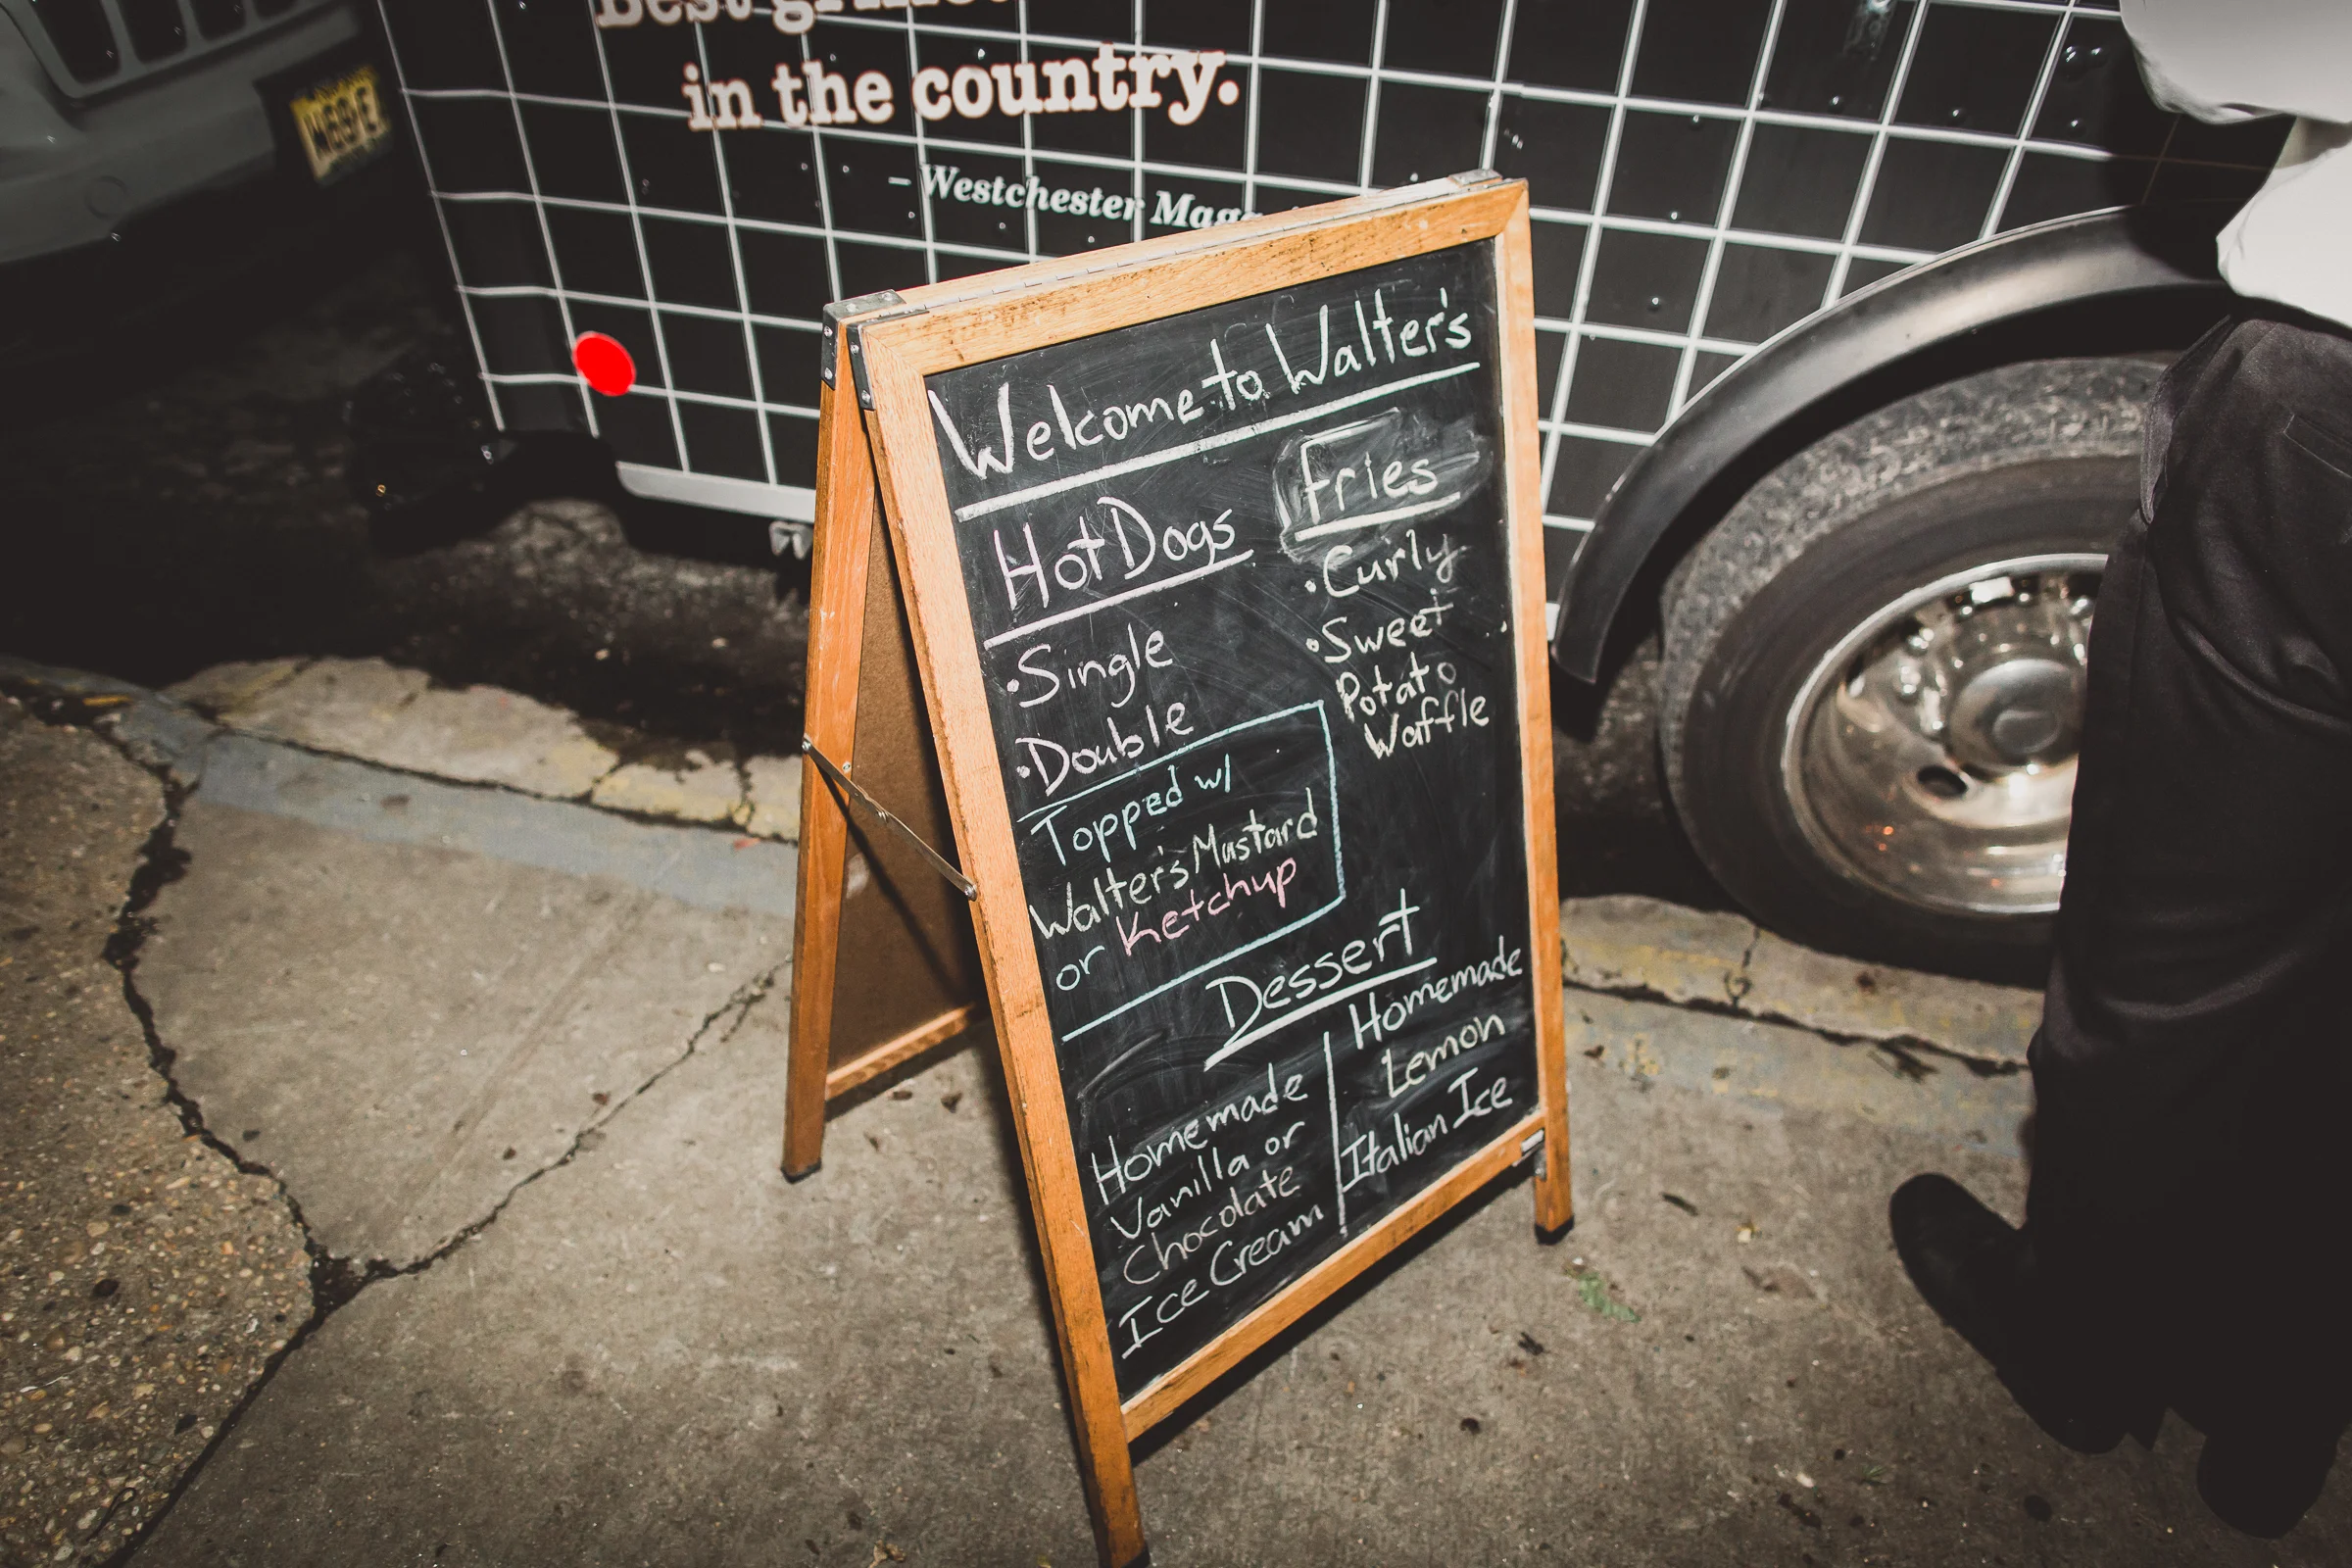 Best
in the country.
– Westchester
Welcome to Walter's
Hot Dogs
• Single
• Double
Topped w/
Walter's Mustard
or Ketchup
Fries
• Curly
• Sweet
Potato
Waffle
Dessert
Homemade
Vanilla or
Chocolate
Ice Cream
Homemade
Lemon
Italian Ice